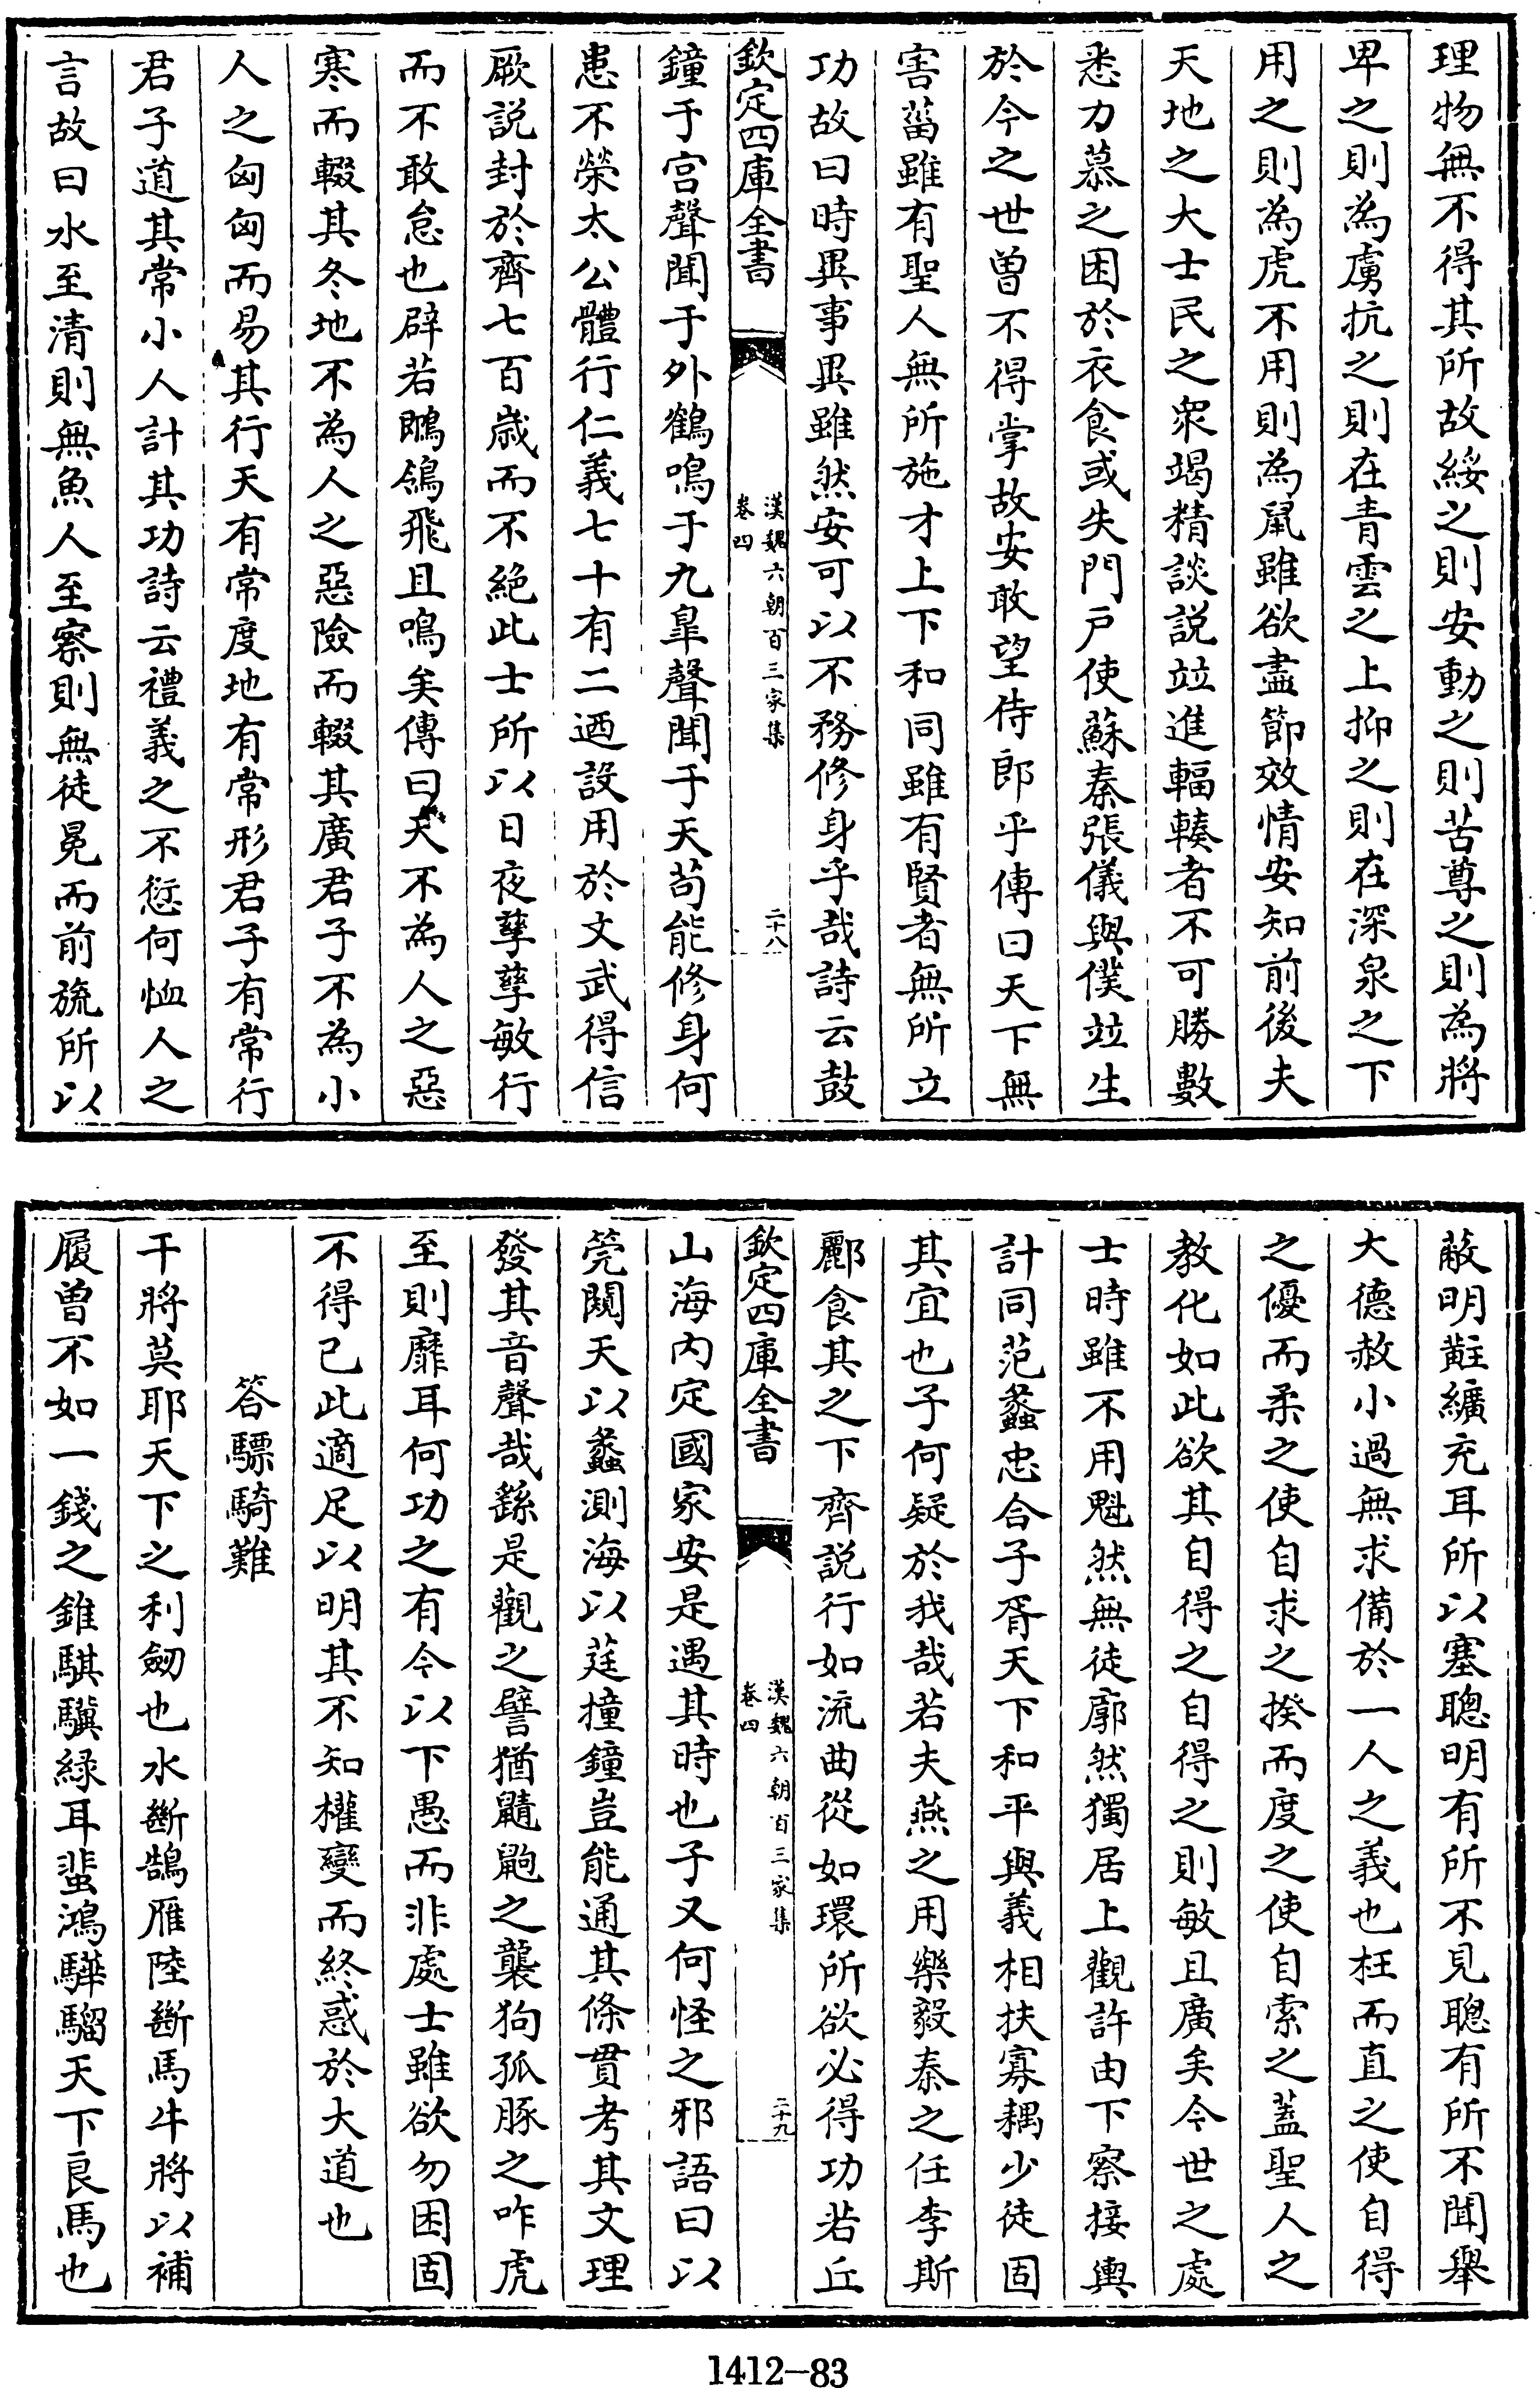 理物無不得其所故綏之則安動之則苦尊之則為將
卑之則為虜抗之則在青雲之上抑之則在深泉之下
用之則為虎不用則為鼠雖欲盡節效情安知前後夫
天地之大士民之衆竭精談説竝進輻輳者不可勝數
悉力慕之困於衣食或失門戶使蘇秦張儀與僕竝生
於今之世曽不得掌故安敢望侍郎乎傳曰天下無
害菑雖有聖人無所施才上下和同雖有賢者無所立
功故曰時異事異雖然安可以不務修身乎哉詩云鼓
欽定四庫全書
漢魏六朝百三家集
卷四
二十八
鐘于宫聲聞于外鶴鳴于九臯聲聞于天茍能修身何
患不榮太公體行仁義七十有二迺設用於文武得信
厥説封於齊七百歲而不絶此士所以日夜孳孳敏行
而不敢怠也辟若鶺鴒飛且鳴矣傳曰天不為人之惡
寒而輟其冬地不為人之惡險而輟其廣君子不為小
人之匈匈而易其行天有常度地有常形君子有常行
君子道其常小人計其功詩云禮義之不愆何恤人之
言故曰水至清則無魚人至察則無徒冕而前旒所以
蔽明黈纊充耳所以塞聰明有所不見聰有所不聞舉
大德赦小過無求備於一人之義也枉而直之使自得
之優而柔之使自求之揆而度之使自索之蓋聖人之
教化如此欲其自得之自得之則敏且廣矣今世之處
士時雖不用魁然無徒廓然獨居上觀許由下察接輿
計同范蠡忠合子胥天下和平與義相扶寡耦少徒固
其宜也子何疑於我哉若夫燕之用樂毅秦之任李斯
酈食其之下齊説行如流曲從如環所欲必得功若丘
欽定四庫全書
漢魏六朝百三家集
卷四
二十九
山海内定國家安是遇其時也子又何怪之邪語曰以
筦闚天以蠡測海以莛撞鐘豈能通其條貫考其文理
發其音聲哉繇是觀之譬猶鼱鼩之襲狗孤豚之咋虎
至則靡耳何功之有今以下愚而非處士雖欲勿困固
不得已此適足以明其不知權變而終惑於大道也
答驃騎難
干將莫耶天下之利劒也水斷鵠雁陸斷馬牛將以補
履曽不如一錢之錐騏驥緑耳蜚鴻驊騮天下良馬也
1412-83